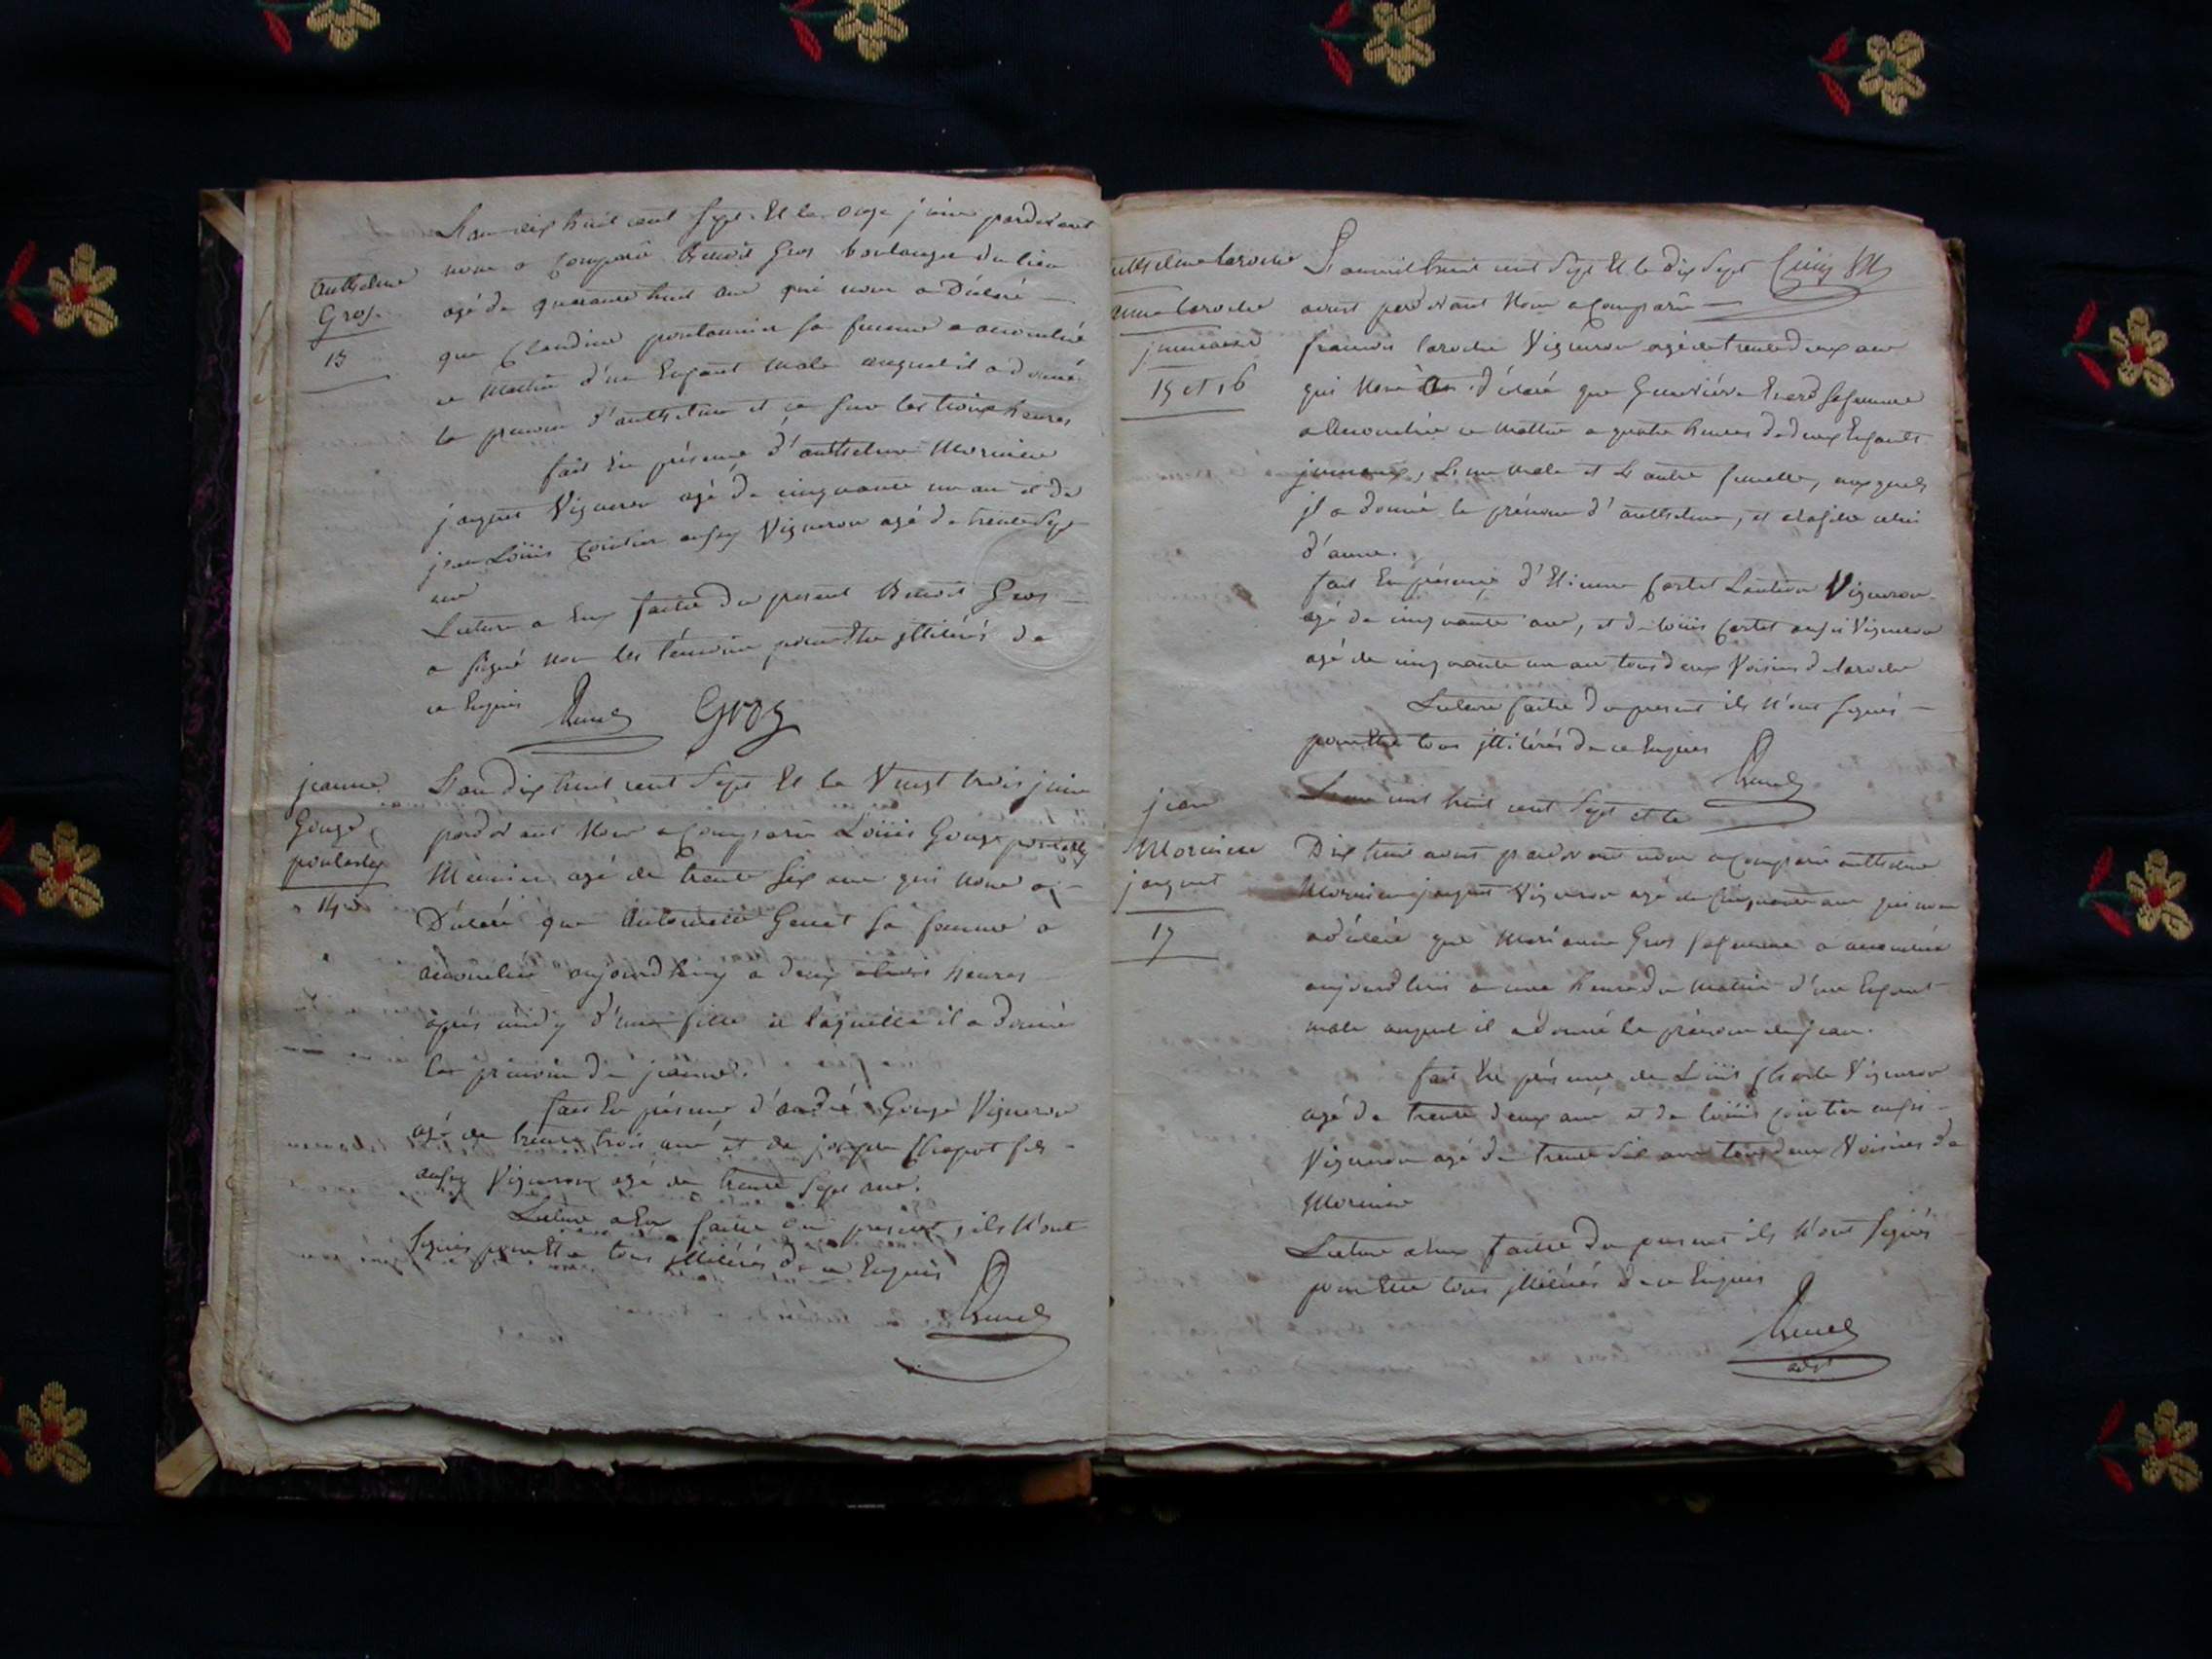 L'an dix huit cent Sept Et le onze juin pardevant
Anthelme
Gros.
13
nous a Comparu Benoit Gros boulanger du lieu
agé de quarante huit ans qui nous a Déclaré —
que Claudine sa femme a accouché
ce Matin d'un Enfant Male auquel il a donné
le prenom d'anthelme et ce sur les heures
fait En présence d'anthelme Morinier
jaquet Vigneron agé de cinquante un an et de
jean Loüis Cointier aussy Vigneron agé de trente Sept
ans
Lecture a Eux faitte du present Benoit Gros —
a signé non les témoins pour Etre jllitérés de
ce Enquis Gros
jeanne
Gouge
14
L'an dix huit cent Sept Et le Vingt trois juin
pardevant Nous a Comparu Loüis Gouge
Meunier agé de trente Six ans qui nous a —
Déclaré que Antoinette Genet sa femme a
accouché aujourdhuy a deux heures
après midy d'une fille a laquelle il a donné
le prenom de jeanne.
fait En présence d'andré Gouge Vigneron
agé de trente trois ans et de joseph Chapot fils —
aussy Vigneron agé de trente Sept ans.
Lecture a Eux faitte du present, ils N'ont
signés pour Etre tous jllitérés de ce Enquis
anthelme Laroche
anne Laroche
jumeaux
15 et 16
L'an mil huit cent Sept Et le dix Sept
aoust pardevant Nous a Comparu —
francois laroche Vigneron agé de trente deux ans
qui Nous a déclaré que Geneviève sa femme
a accouché ce Mattin a quatre heures de deux Enfants
jumeaux, L'un Male et L'autre femelle, auxquels
jl a donné le prénom d'anthelme, et a la fille celui
d'anne.
fait En présence d'Etienne Cortet Vigneron
agé de cinquante ans, et de loüis Cortet aussi Vigneron
agé de cinquante un ans tous deux Voisins de laroche
Lecture faitte du present ils N'ont signés —
pour Etre tous jllitérés de ce Enquis
jean
Morinier
jaquet
17
L'an mil huit cent Sept et le
Dix huit aoust pardevant nous a Comparu anthelme
Morinier jaquet Vigneron agé de Cinquante ans qui nous
a déclaré que Marianne Gros sa femme a accouché
aujourdhui a une heure du Matin d'un Enfant
male auquel il a donné le prénom de jean.
fait En présence de Loüis Vigneron
agé de trente deux ans et de loüis Cointier aussi —
Vigneron agé de trente Six ans tous deux Voisins de
Morinier
Lecture a Eux faitte du present ils N'ont signés
pour Etre tous jllitérés de ce Enquis